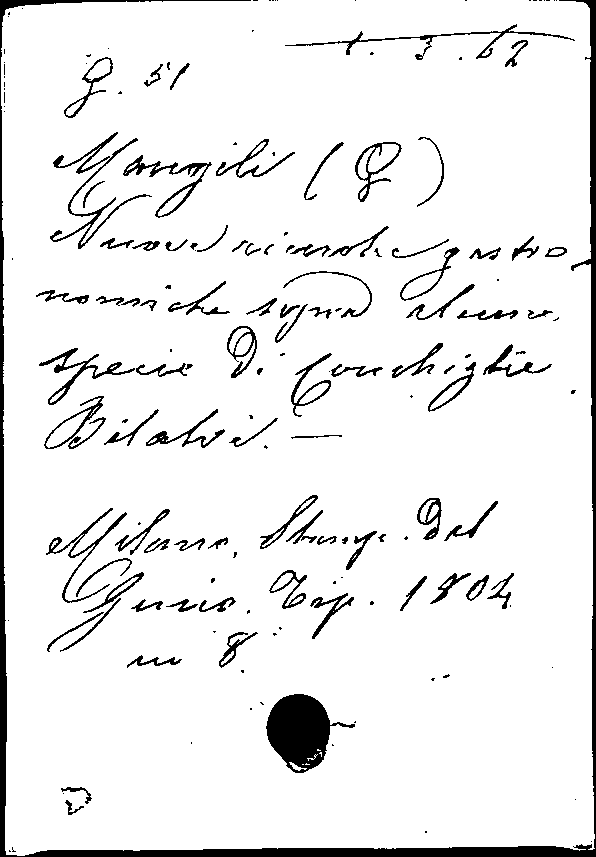 1. 3. 62
G. 51
Mangili (G)
Nuove ricerche gastro-
nomiche sopra alcune
specie di Conchiglie
Bilalvi. —
Milano. Stamp. Del
Genio. Tip. 1804
in 8.
D